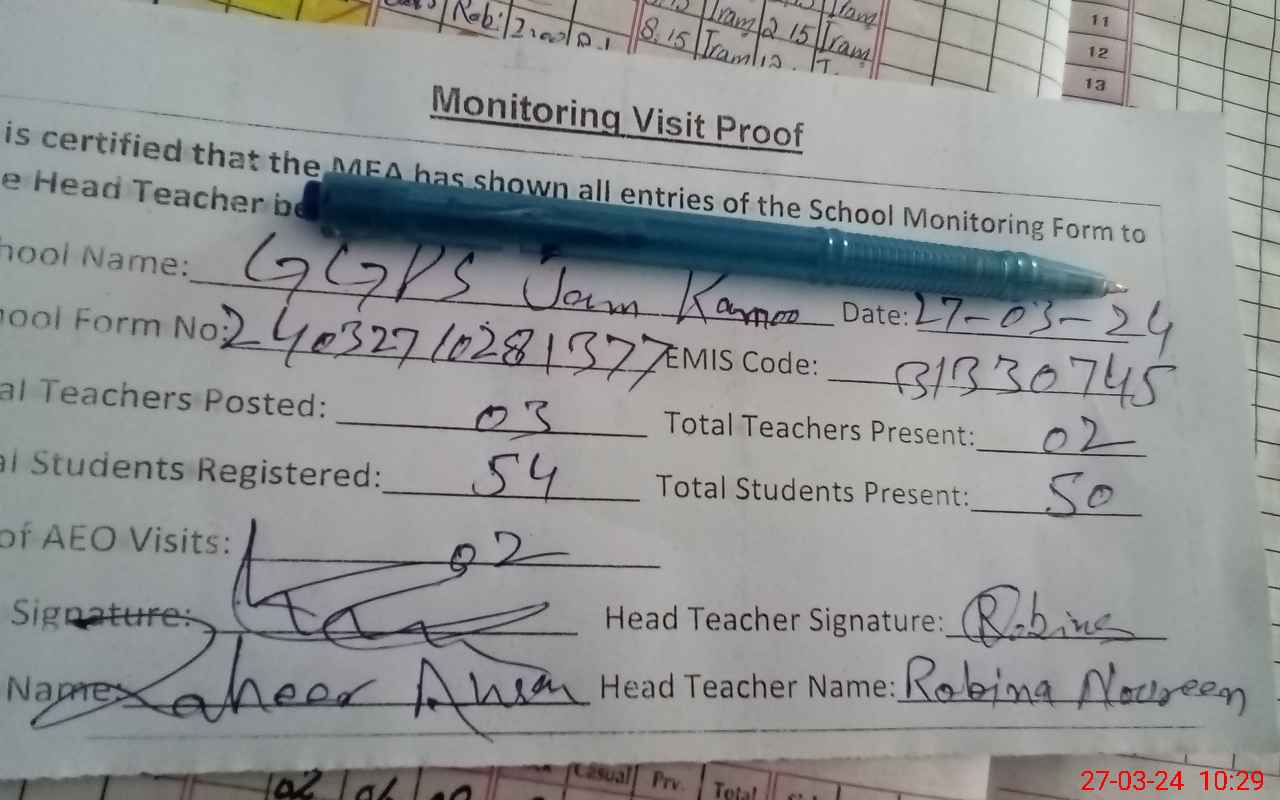 Rob: 2:00
8.15 Iram 2 15 Iram
11
12
13
Monitoring Visit Proof
is certified that the MEA has shown all entries of the School Monitoring Form to
e Head Teacher be
hool Name: GGPS Jam Kamoo Date: 27-03-24
hool Form No: 24032710281377 EMIS Code: 31330745
al Teachers Posted: 03 Total Teachers Present: 02
al Students Registered: 54 Total Students Present: 50
of AEO Visits: 02
Signature: Head Teacher Signature: Robina
Name: Zaheer Ahsan Head Teacher Name: Robina Noureen
02 06
Casual Prv. Total
27-03-24 10:29